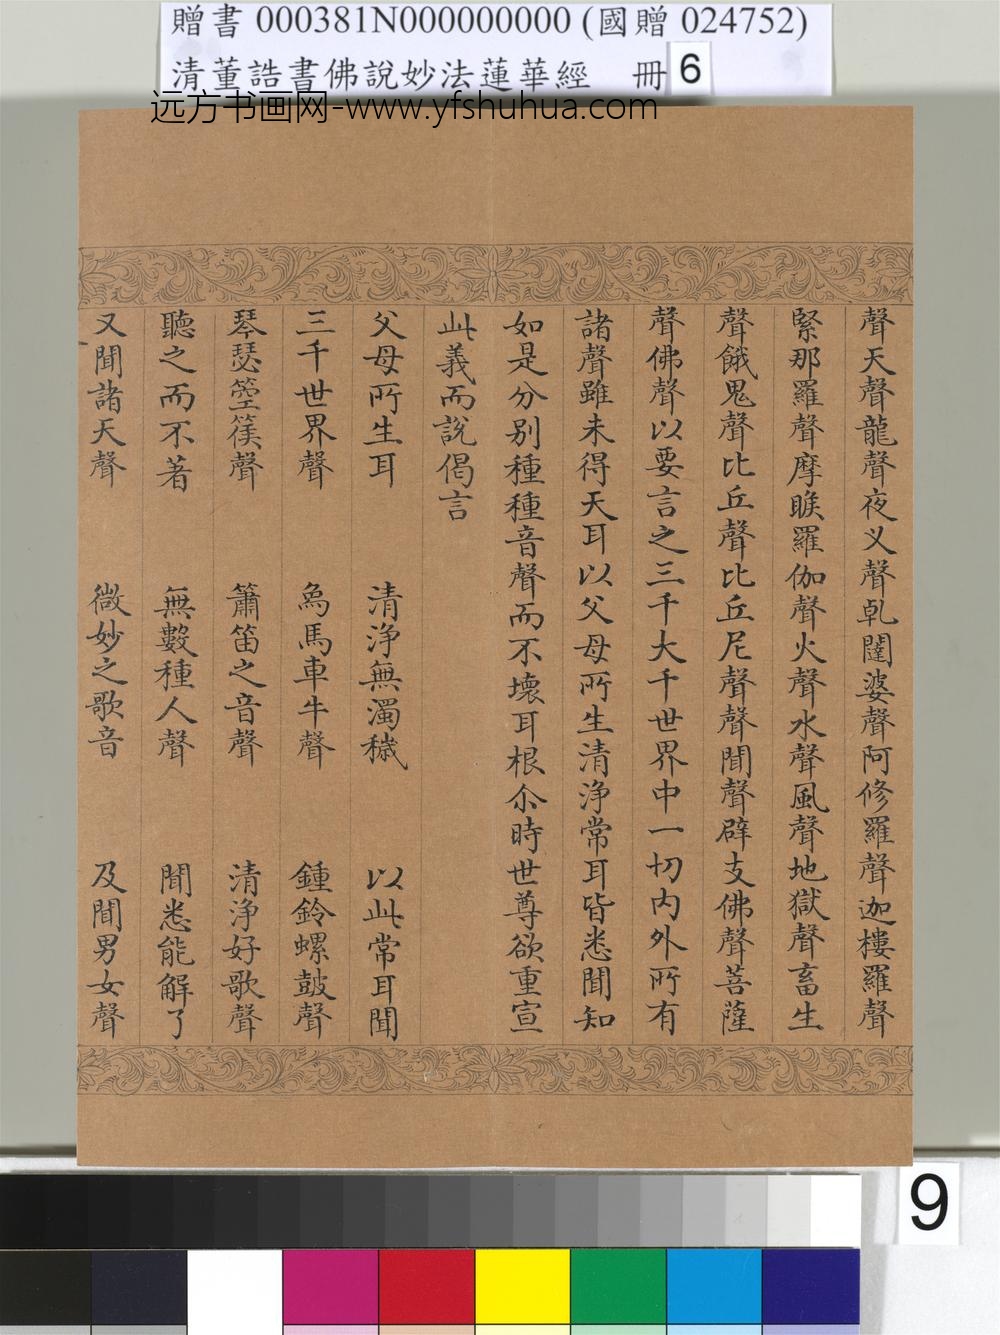 贈書 000381N000000000 (國贈 024752)
清董誥書佛說妙法蓮華經 冊 6
远方书画网-www.yfshuhua.com
聲天聲龍聲夜义聲乹闥婆聲阿修羅聲迦樓羅聲
緊那羅聲摩睺羅伽聲火聲水聲風聲地獄聲畜生
聲餓鬼聲比丘聲比丘尼聲聲聞聲辟支佛聲菩薩
聲佛聲以要言之三千大千世界中一切內外所有
諸聲雖未得天耳以父母所生清淨常耳皆悉聞知
如是分別種種音聲而不壞耳根尒時世尊欲重宣
此義而說偈言
父母所生耳 清淨無濁穢 以此常耳聞
三千世界聲 象馬車牛聲 鍾鈴螺鼓聲
琴瑟箜篌聲 簫笛之音聲 清淨好歌聲
聽之而不著 無數種人聲 聞悉能解了
又聞諸天聲 微妙之歌音 及聞男女聲
9